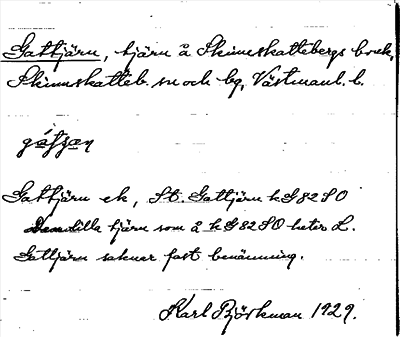 Gattjärn, tjärn å Skinnskattebergs bruk,
Skinnskatteb. sn och bg, Västmanl. l.
Gattjärn ek, St. Gattjärn k G 82 SO
Den lilla tjärn som å k G 82 SO heter L.
Gattjärn saknar fast benämning.
Karl Björkman 1929.